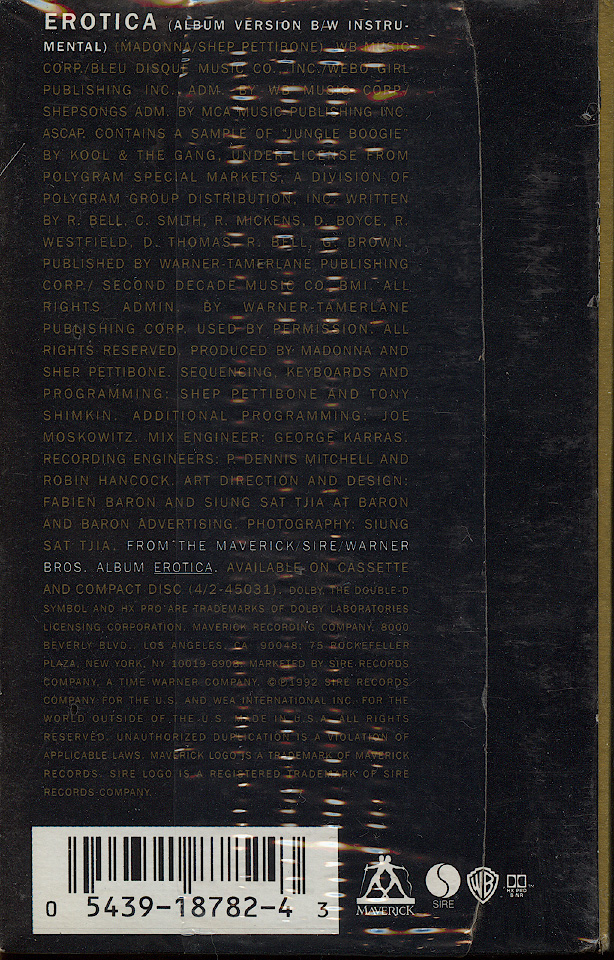 EROTICA (ALBUM VERSION B/W INSTRU-
MENTAL) (MADONNA/SHEP PETTIBONE). WB MUSIC
CORP./BLEU DISQUE MUSIC CO., INC./WEBO GIRL
PUBLISHING INC., ADM. BY WB MUSIC CORP./
SHEPSONGS ADM. BY MCA MUSIC PUBLISHING INC.
ASCAP. CONTAINS A SAMPLE OF "JUNGLE BOOGIE"
BY KOOL & THE GANG, UNDER LICENSE FROM
POLYGRAM SPECIAL MARKETS, A DIVISION OF
POLYGRAM GROUP DISTRIBUTION, INC. WRITTEN
BY R. BELL, C. SMITH, R. MICKENS, D. BOYCE, R.
WESTFIELD, D. THOMAS, R. BELL, G. BROWN.
PUBLISHED BY WARNER-TAMERLANE PUBLISHING
CORP./ SECOND DECADE MUSIC CO. BMI. ALL
RIGHTS ADMIN. BY WARNER-TAMERLANE
PUBLISHING CORP. USED BY PERMISSION. ALL
RIGHTS RESERVED. PRODUCED BY MADONNA AND
SHEP PETTIBONE. SEQUENCING, KEYBOARDS AND
PROGRAMMING: SHEP PETTIBONE AND TONY
SHIMKIN. ADDITIONAL PROGRAMMING: JOE
MOSKOWITZ. MIX ENGINEER: GEORGE KARRAS.
RECORDING ENGINEERS: P. DENNIS MITCHELL AND
ROBIN HANCOCK. ART DIRECTION AND DESIGN:
FABIEN BARON AND SIUNG SAT TJIA AT BARON
AND BARON ADVERTISING. PHOTOGRAPHY: SIUNG
SAT TJIA. FROM THE MAVERICK/SIRE/WARNER
BROS. ALBUM EROTICA. AVAILABLE ON CASSETTE
AND COMPACT DISC (4/2-45031). DOLBY, THE DOUBLE-D
SYMBOL AND HX PRO ARE TRADEMARKS OF DOLBY LABORATORIES
LICENSING CORPORATION. MAVERICK RECORDING COMPANY, 8000
BEVERLY BLVD., LOS ANGELES, CA. 90048; 75 ROCKEFELLER
PLAZA, NEW YORK, NY 10019-6908. MARKETED BY SIRE RECORDS
COMPANY, A TIME WARNER COMPANY. ©℗1992 SIRE RECORDS
COMPANY FOR THE U.S. AND WEA INTERNATIONAL INC. FOR THE
WORLD OUTSIDE OF THE U.S. MADE IN U.S.A. ALL RIGHTS
RESERVED. UNAUTHORIZED DUPLICATION IS A VIOLATION OF
APPLICABLE LAWS. MAVERICK LOGO IS A TRADEMARK OF MAVERICK
RECORDS. SIRE LOGO IS A REGISTERED TRADEMARK OF SIRE
RECORDS COMPANY.
0 5439-18782-4 3
MAVERICK
SIRE
WB
HX PRO
B NR